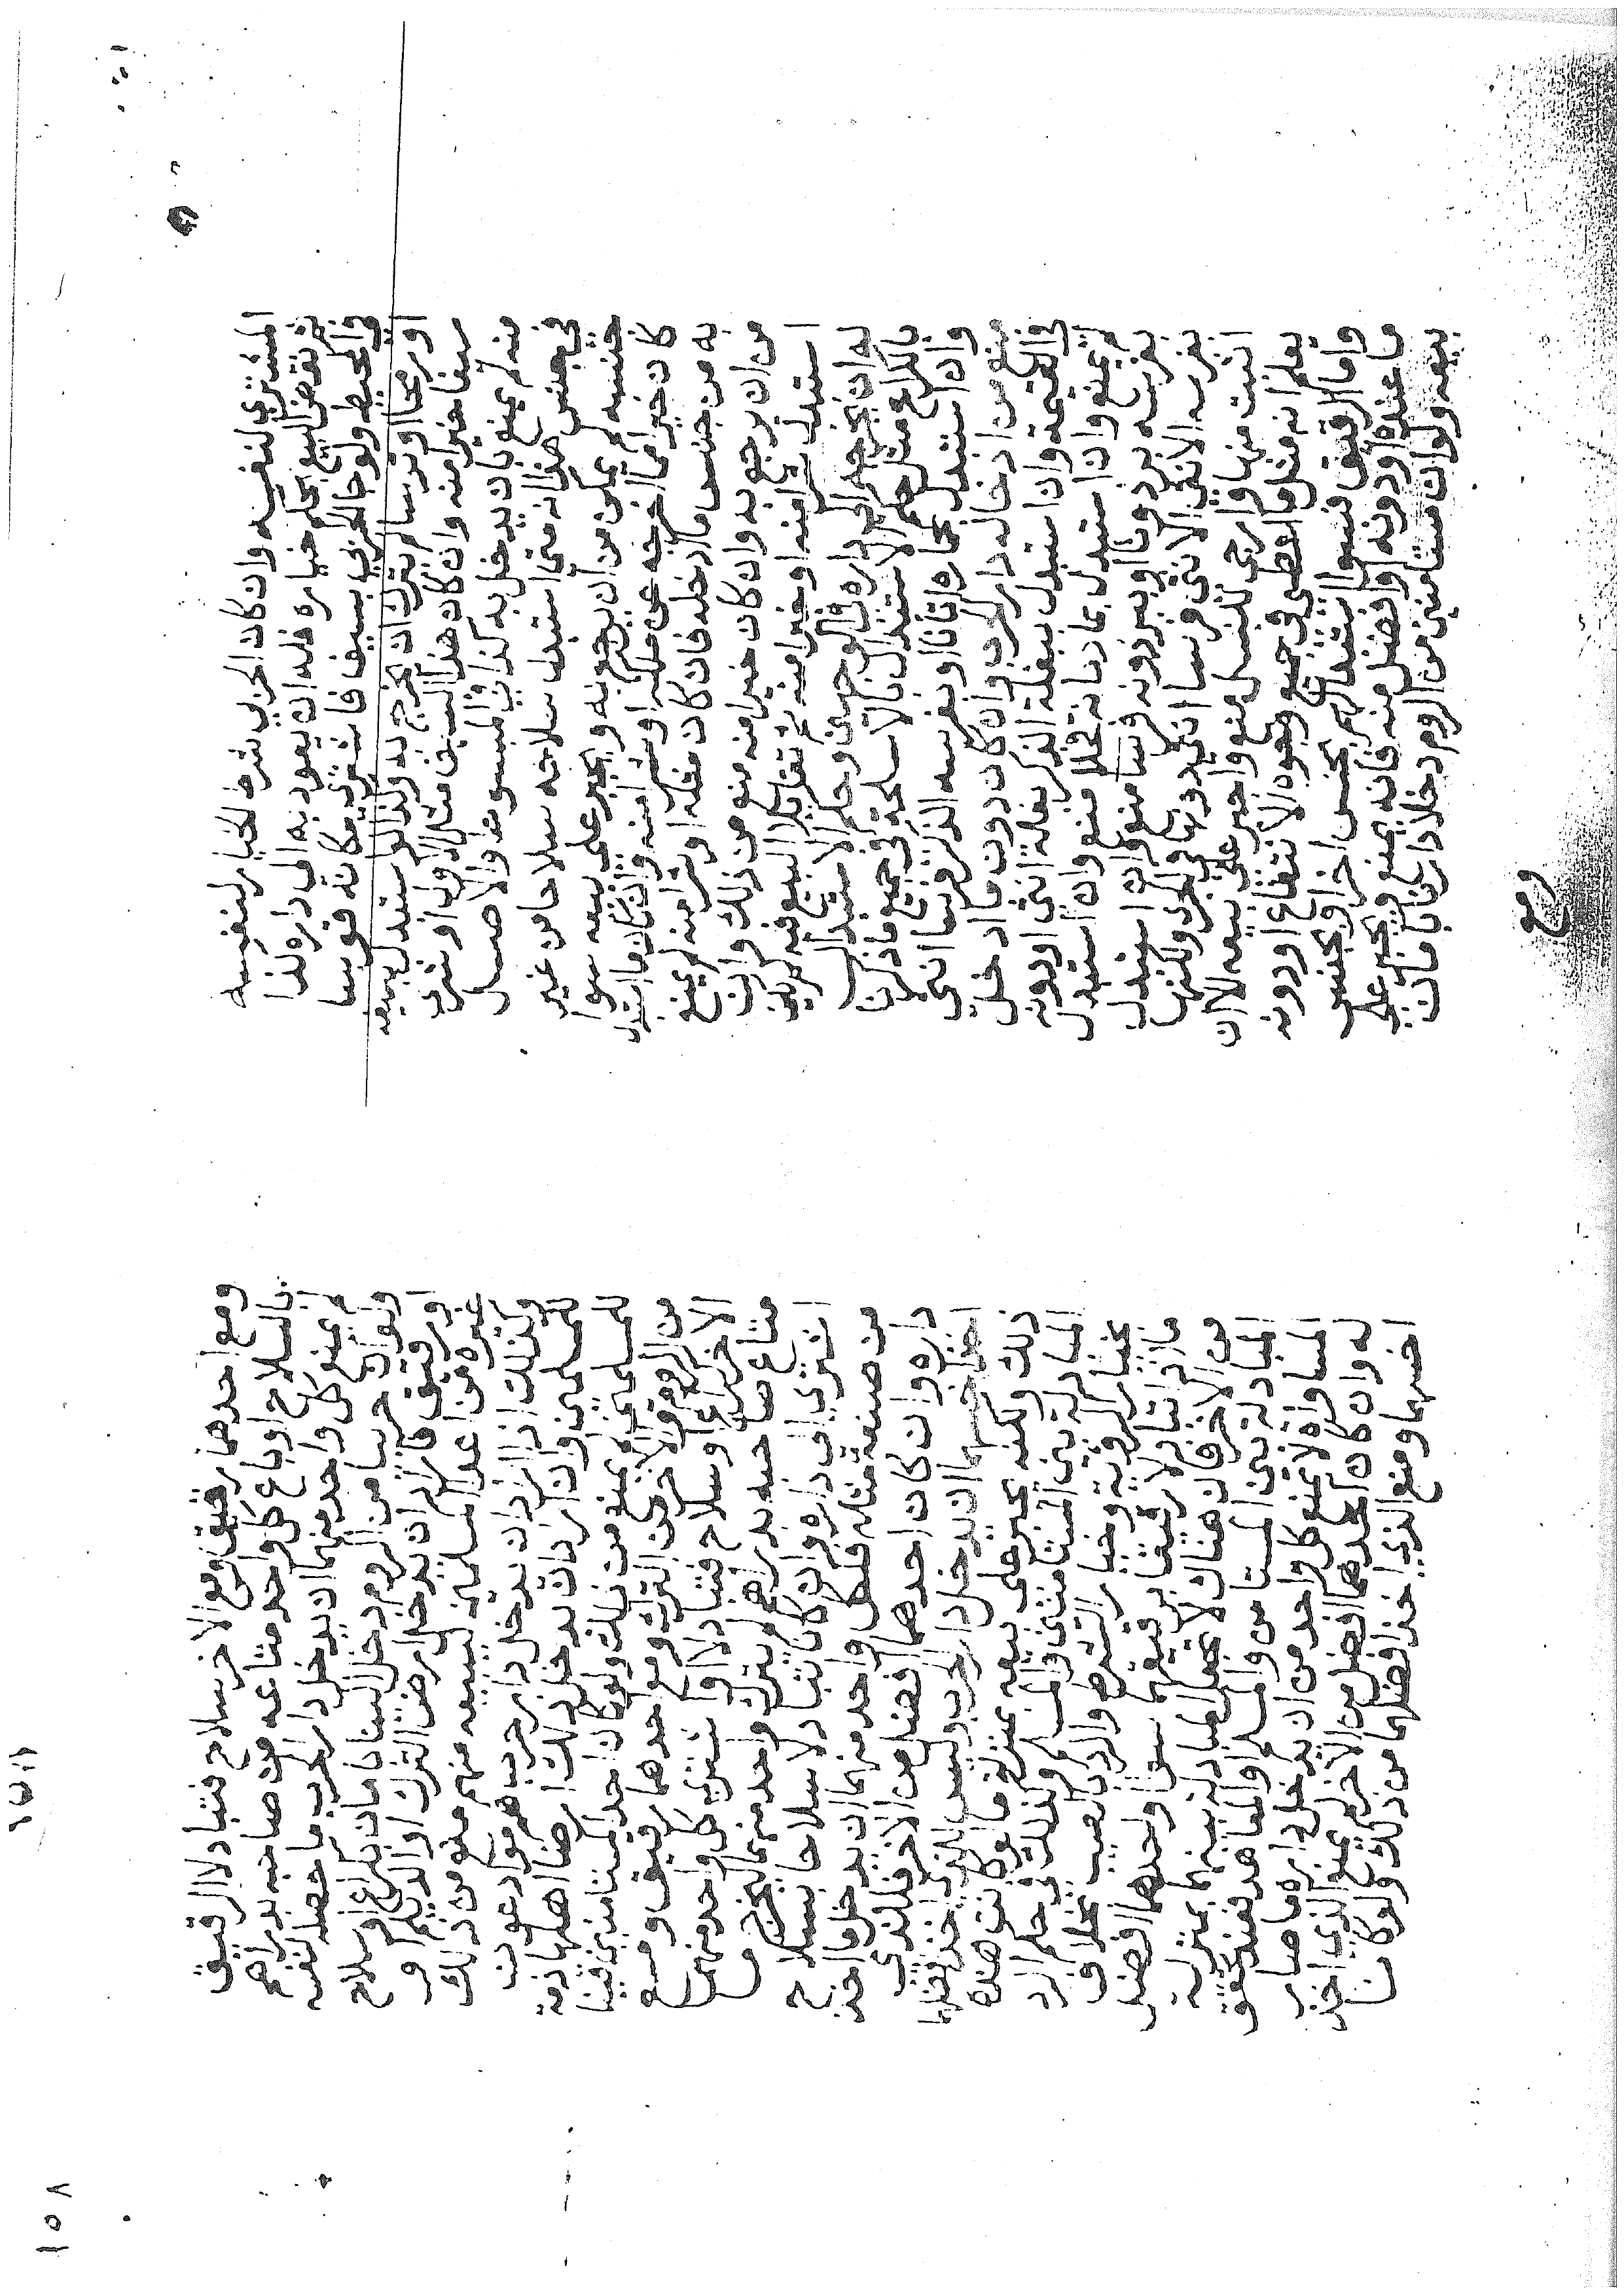 المشتري لنفسه وان كان الحربي شرط الخيار لنفسه
ثم نقض البيع بحكم خياره فله ان يعود به الى داره كذا
في المحيط ولو جا الحربي بسيف فاشترى مكانه قوسا
او رمحا او ترسا لم يترك ان يخرج به وكذا لو استبدل بسيفه
سيفا خيرا منه وان كان هذا السيف مثل الاول او شرا
منه لم يمنع بان يدخل به كذا في المبسوط والاصل
في جنس هذا انه متى استبدل سلاحه سلاحا من غير
جنسه لم يمكن من ان يرجع به ويجبر على بيعه سوا
كان خيرا مما اخرجه عن ملكه او شرا منه وان كان ما استبدل
به من جنس ما ادخله فان كان مثله او شرا منه لم يمنع
من ان يرجع به وان كان خيرا منه منع من ذلك وان
استبدل شرا منه او خيرا منه ثم تقايلا البيع فيه لم يكن
له ان يخرجه الى داره في الوجهين وحكم الاستبدال
بالكراع مثل حكم الاستبدال بالاسلحة في جميع ما ذكرنا
وان استبدل بحماره اتانا او بفرسه الذكر فرسا انثى
منع من ادخاله دار الحرب وان كان دون ما ادخل
في القيمة وان استبدل ببغلة الذكر بغلة انثى او دونه
لم يمنع وان استبدل فحلا منع وان استبدل
بفرسه برذونا او ببرذونه فرسا منع وان استبدل
بفرسه الانثى الانثى فرسا انثى دونها في الجري ولكنها
اثبت منها وارجى للنسل منع واجبر على بيعه الا ان
يعلم انه مثل ما اعطى في جميع وجوه الانتفاع او دونه
واما الرقيق فسوا استبدلهم بجنس اخر او بجنس
ما عنده او دونه او افضل منه فانه يمنع ويجبر على
بيعه ولو ان مستامنين من الروم دخلا دارنا بامان
ومع
ومع احدهما رقيق ومع الاخر سلاح فتبادلا الرقيق
بالسلاح او باع كل واحد متاعه من صاحبه بدراهم
لم يمنع كل واحد منهما ان يدخل دار الحرب ما حصل لنفسه
ولو ان حربيا من الروم دخل الينا بامان بكراع او سلاح
او رقيق فاراد ان يدخل ارض الترك او الديلم او
غيره من اعدا المسلمين ليبيعه منهم منع من ذلك
وكذلك اذا اراد ان يدخل دار حرب هم موادعون
للمسلمين وان اراد ان يدخل بذلك ارضا اهلها ذمة
للمسلمين لم يمنع من ذلك ولو كان احد المستامنين فينا
من الروم والاخر من الترك ومع احدهما رقيق ومع
الاخر كراع او سلاح فتبادلا او اشترى كل واحد منهما
متاع صاحبه بدراهم لم يترك واحد منهما ليخرج ما
اشترى الى داره وان كانا تبادلا سلاحا بسلاح
من صنفه مثله فلكل واحد منهما ان يدخل ما اخذ
داره وان كان احدهما افضل من الاخر فللذي
اخذ اخسهما ان يدخل دار الحرب وليس للذي اخذ افضلهما
ذلك ولكنه يجبر على بيعه بمنزلة ما لو كانت هذه
المبادلة بين المستامن والمسلم وكذلك في حكم الرد
بخيار الرؤية وخيار الشرط والرد بالعيب بخلاف
ما اذا تبادلا رقيقا برقيق سوا واحدهما افضل
من الاخر فان هناك لا يجعل المبادلة بينهما بمنزلة
المبادلة بين المستامن والمسلم والمعاهد فعند تحقق
المساواة لا يمنع كل واحد من ان يدخل داره ما صار
له وان كان احدهما افضل من الاخر لم يمنع الذي اخذ
اخسهما ومنع الذي اخذ افضلهما من ذلك ولو كان
١٥٨